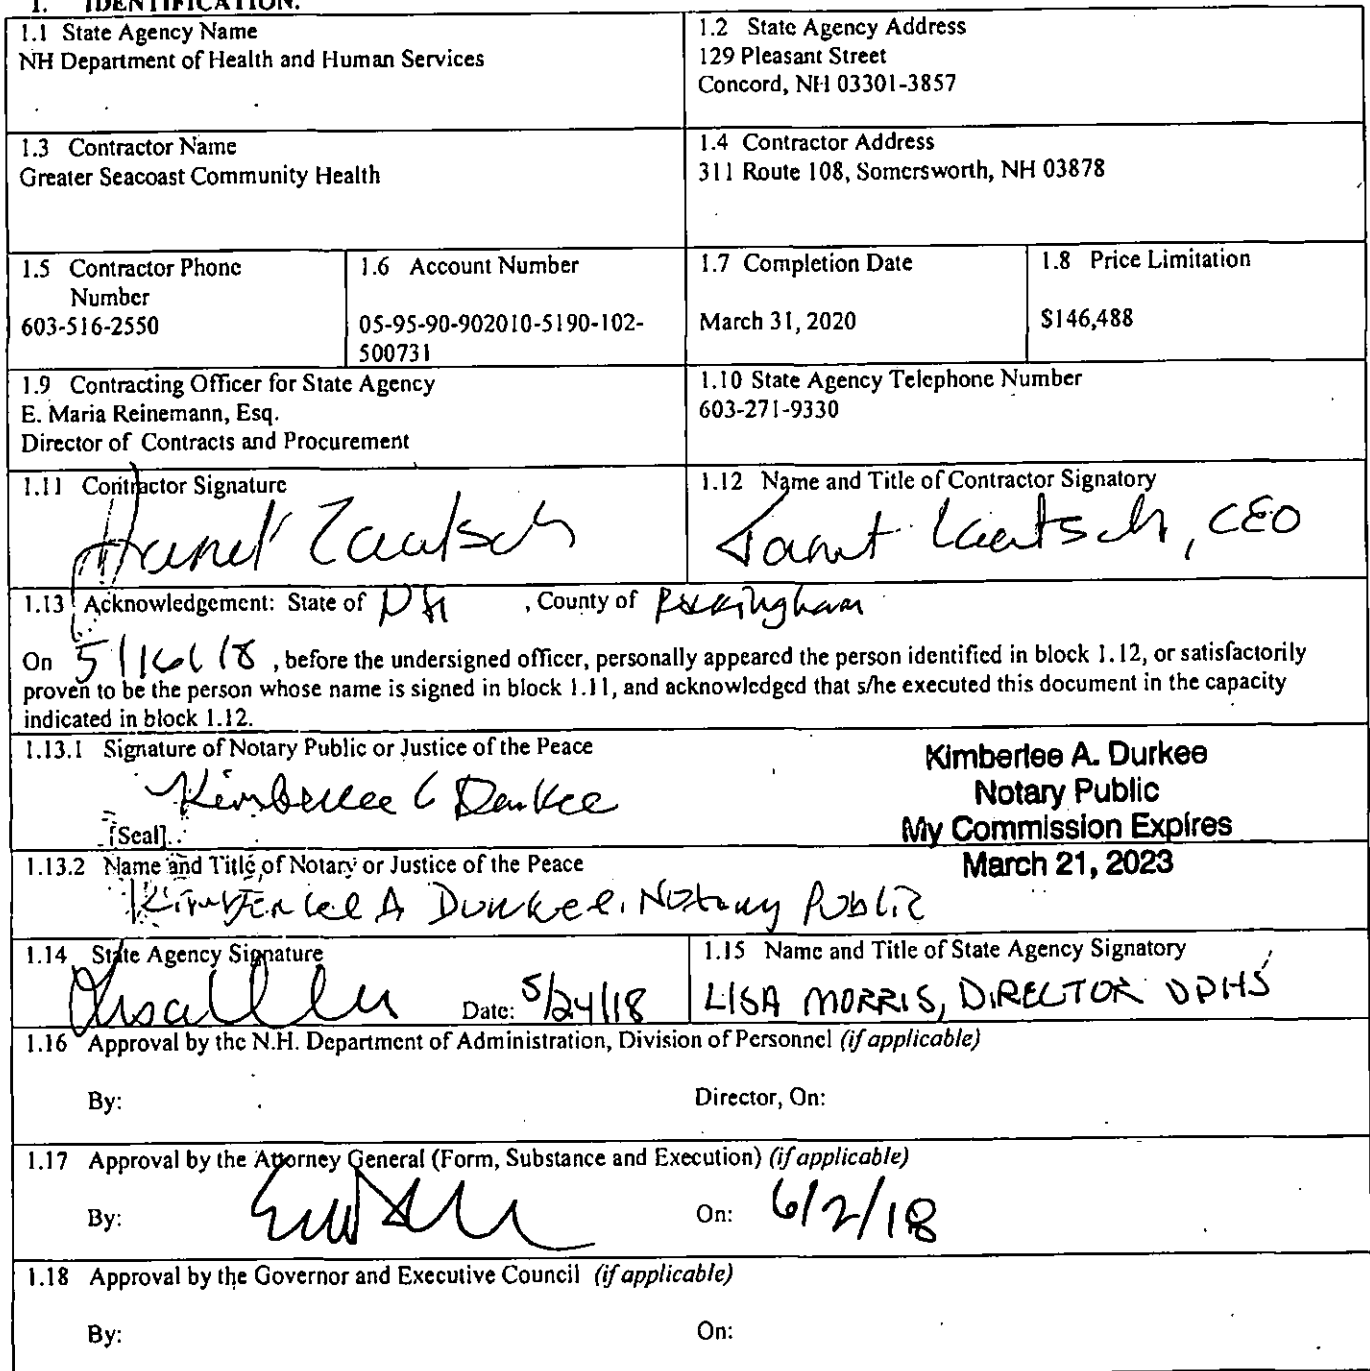 1. IDENTIFICATION.
1.1 State Agency Name
NH Department of Health and Human Services
1.2 State Agency Address
129 Pleasant Street
Concord, NH 03301-3857
1.3 Contractor Name
Greater Seacoast Community Health
1.4 Contractor Address
311 Route 108, Somersworth, NH 03878
1.5 Contractor Phone
Number
603-516-2550
1.6 Account Number
05-95-90-902010-5190-102-
500731
1.7 Completion Date
March 31, 2020
1.8 Price Limitation
$146,488
1.9 Contracting Officer for State Agency
E. Maria Reinemann, Esq.
Director of Contracts and Procurement
1.10 State Agency Telephone Number
603-271-9330
1.11 Contractor Signature
1.12 Name and Title of Contractor Signatory
Janet Laatsch, CEO
1.13 Acknowledgement: State of NH , County of Rockingham
On 5/16/18 , before the undersigned officer, personally appeared the person identified in block 1.12, or satisfactorily
proven to be the person whose name is signed in block 1.11, and acknowledged that s/he executed this document in the capacity
indicated in block 1.12.
1.13.1 Signature of Notary Public or Justice of the Peace
[Seal]
Kimberlee A. Durkee
Notary Public
My Commission Expires
March 21, 2023
1.13.2 Name and Title of Notary or Justice of the Peace
Kimberlee A Durkee, Notary Public
1.14 State Agency Signature
Date: 5/24/18
1.15 Name and Title of State Agency Signatory
LISA MORRIS, DIRECTOR DPHS
1.16 Approval by the N.H. Department of Administration, Division of Personnel (if applicable)
By:
Director, On:
1.17 Approval by the Attorney General (Form, Substance and Execution) (if applicable)
By:
On: 6/2/18
1.18 Approval by the Governor and Executive Council (if applicable)
By:
On: